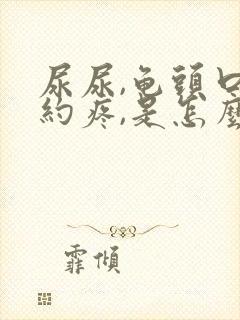 尿尿,龟頭口
約疼,是怎麼
霏傾